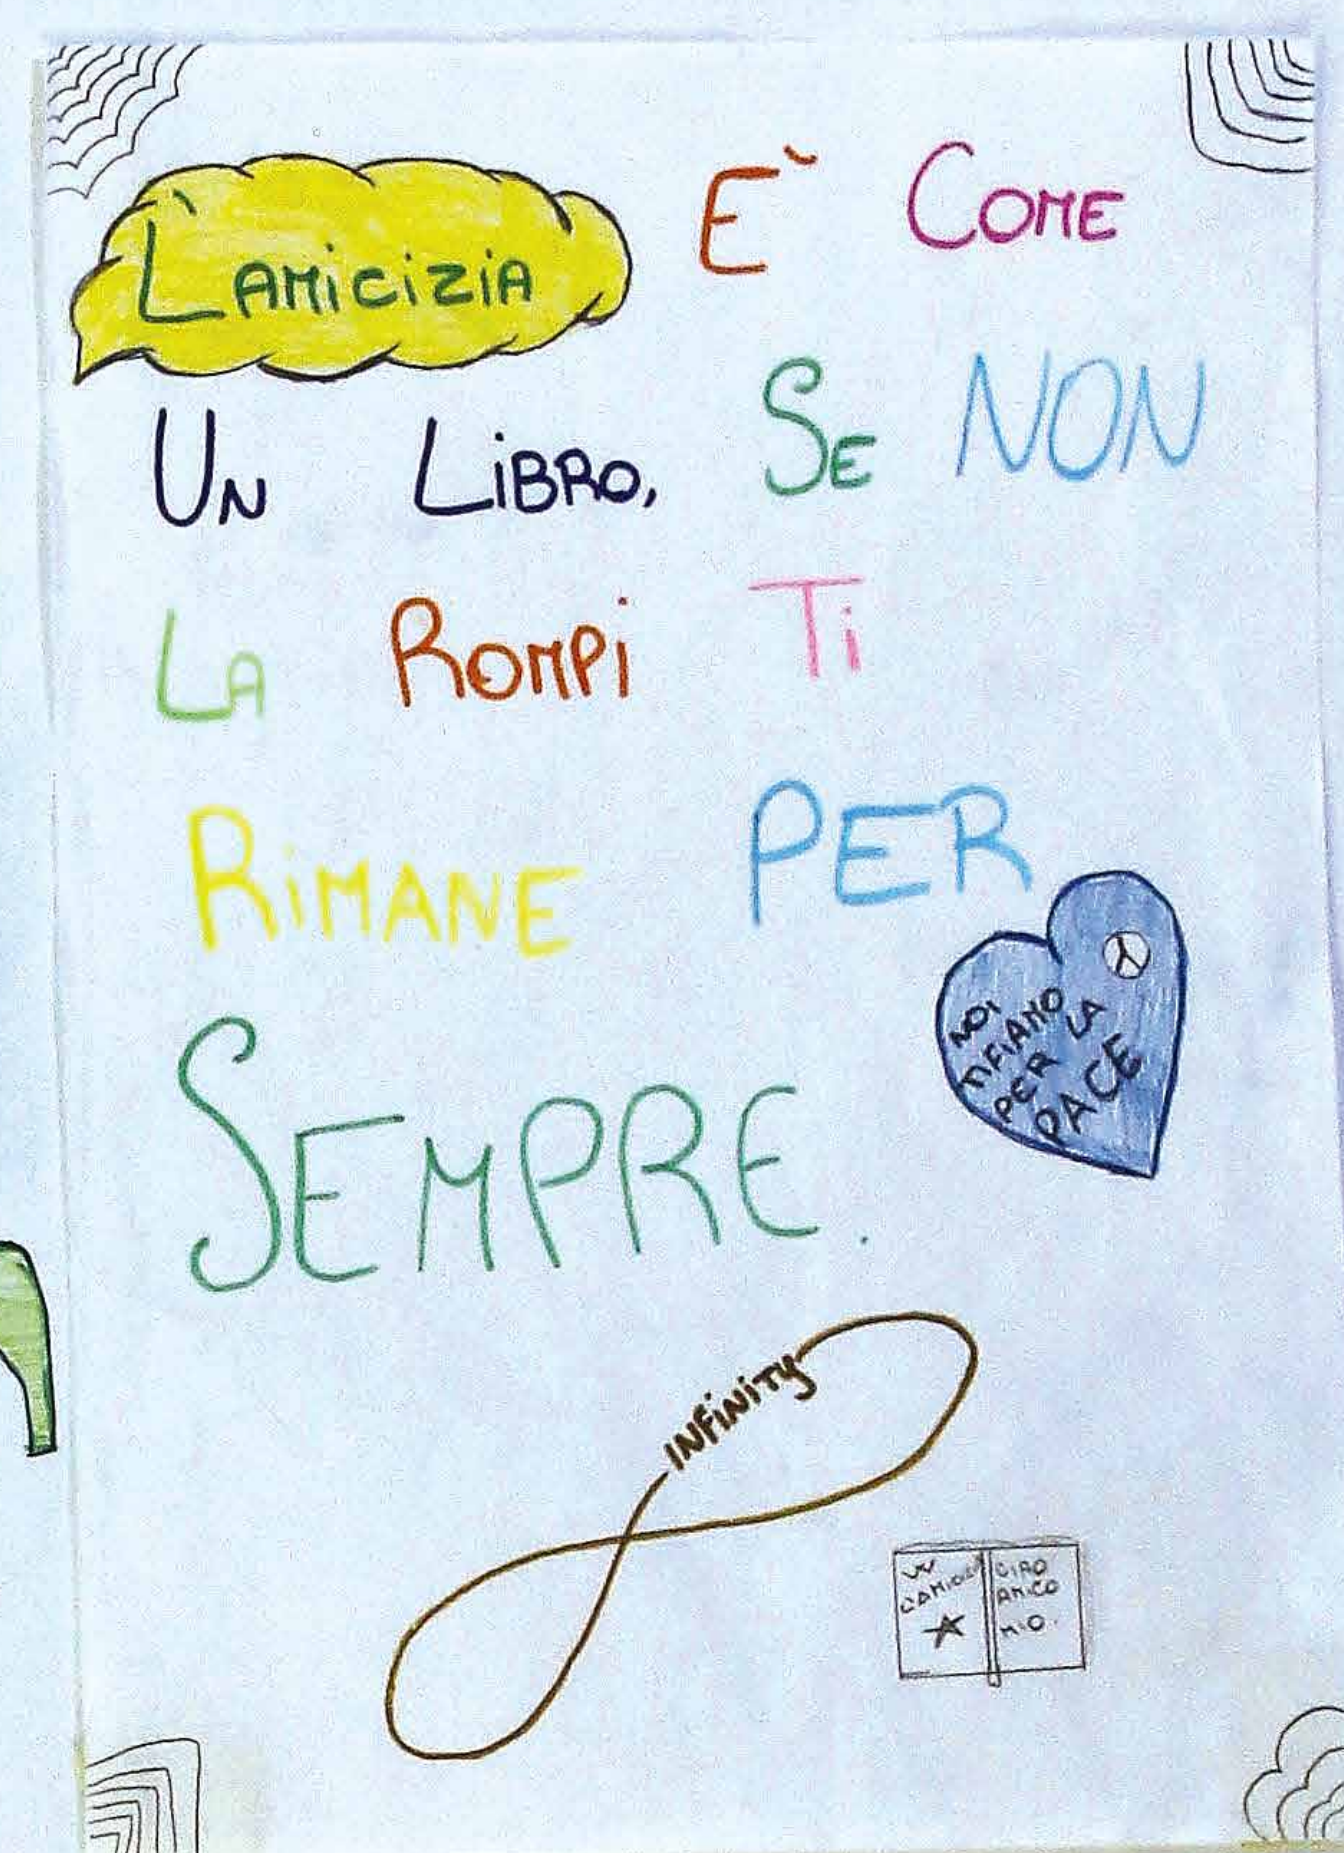 L'AMICIZIA È COME
UN LIBRO, SE NON
LA ROMPI TI
RIMANE PER
SEMPRE.
NOI
TIFIAMO
PER LA
PACE
INFINITY
W
L'AMICIZIA
CIAO
AMICO
MIO.